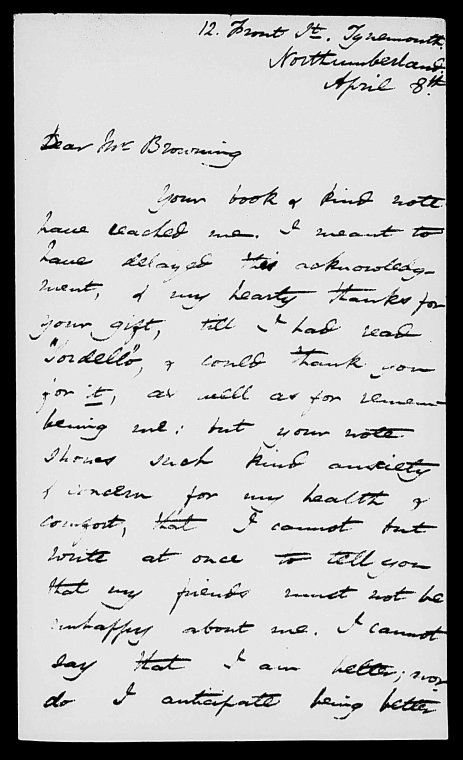 12. Front St. Tynemouth.
Northumberland
April 8th
Dear Mr Browning
Your book & kind note
have reached me. I meant to
have delayed this acknowledg-
ment, & my hearty thanks for
your gift, till I had read
"Sordello", & could thank you
for it, as well as for remem-
bering me: but your note
shows such kind anxiety
& concern for my health &
comfort, that I cannot but
write at once to tell you
that my friends must not be
unhappy about me. I cannot
say that I am better; nor
do I anticipate being better